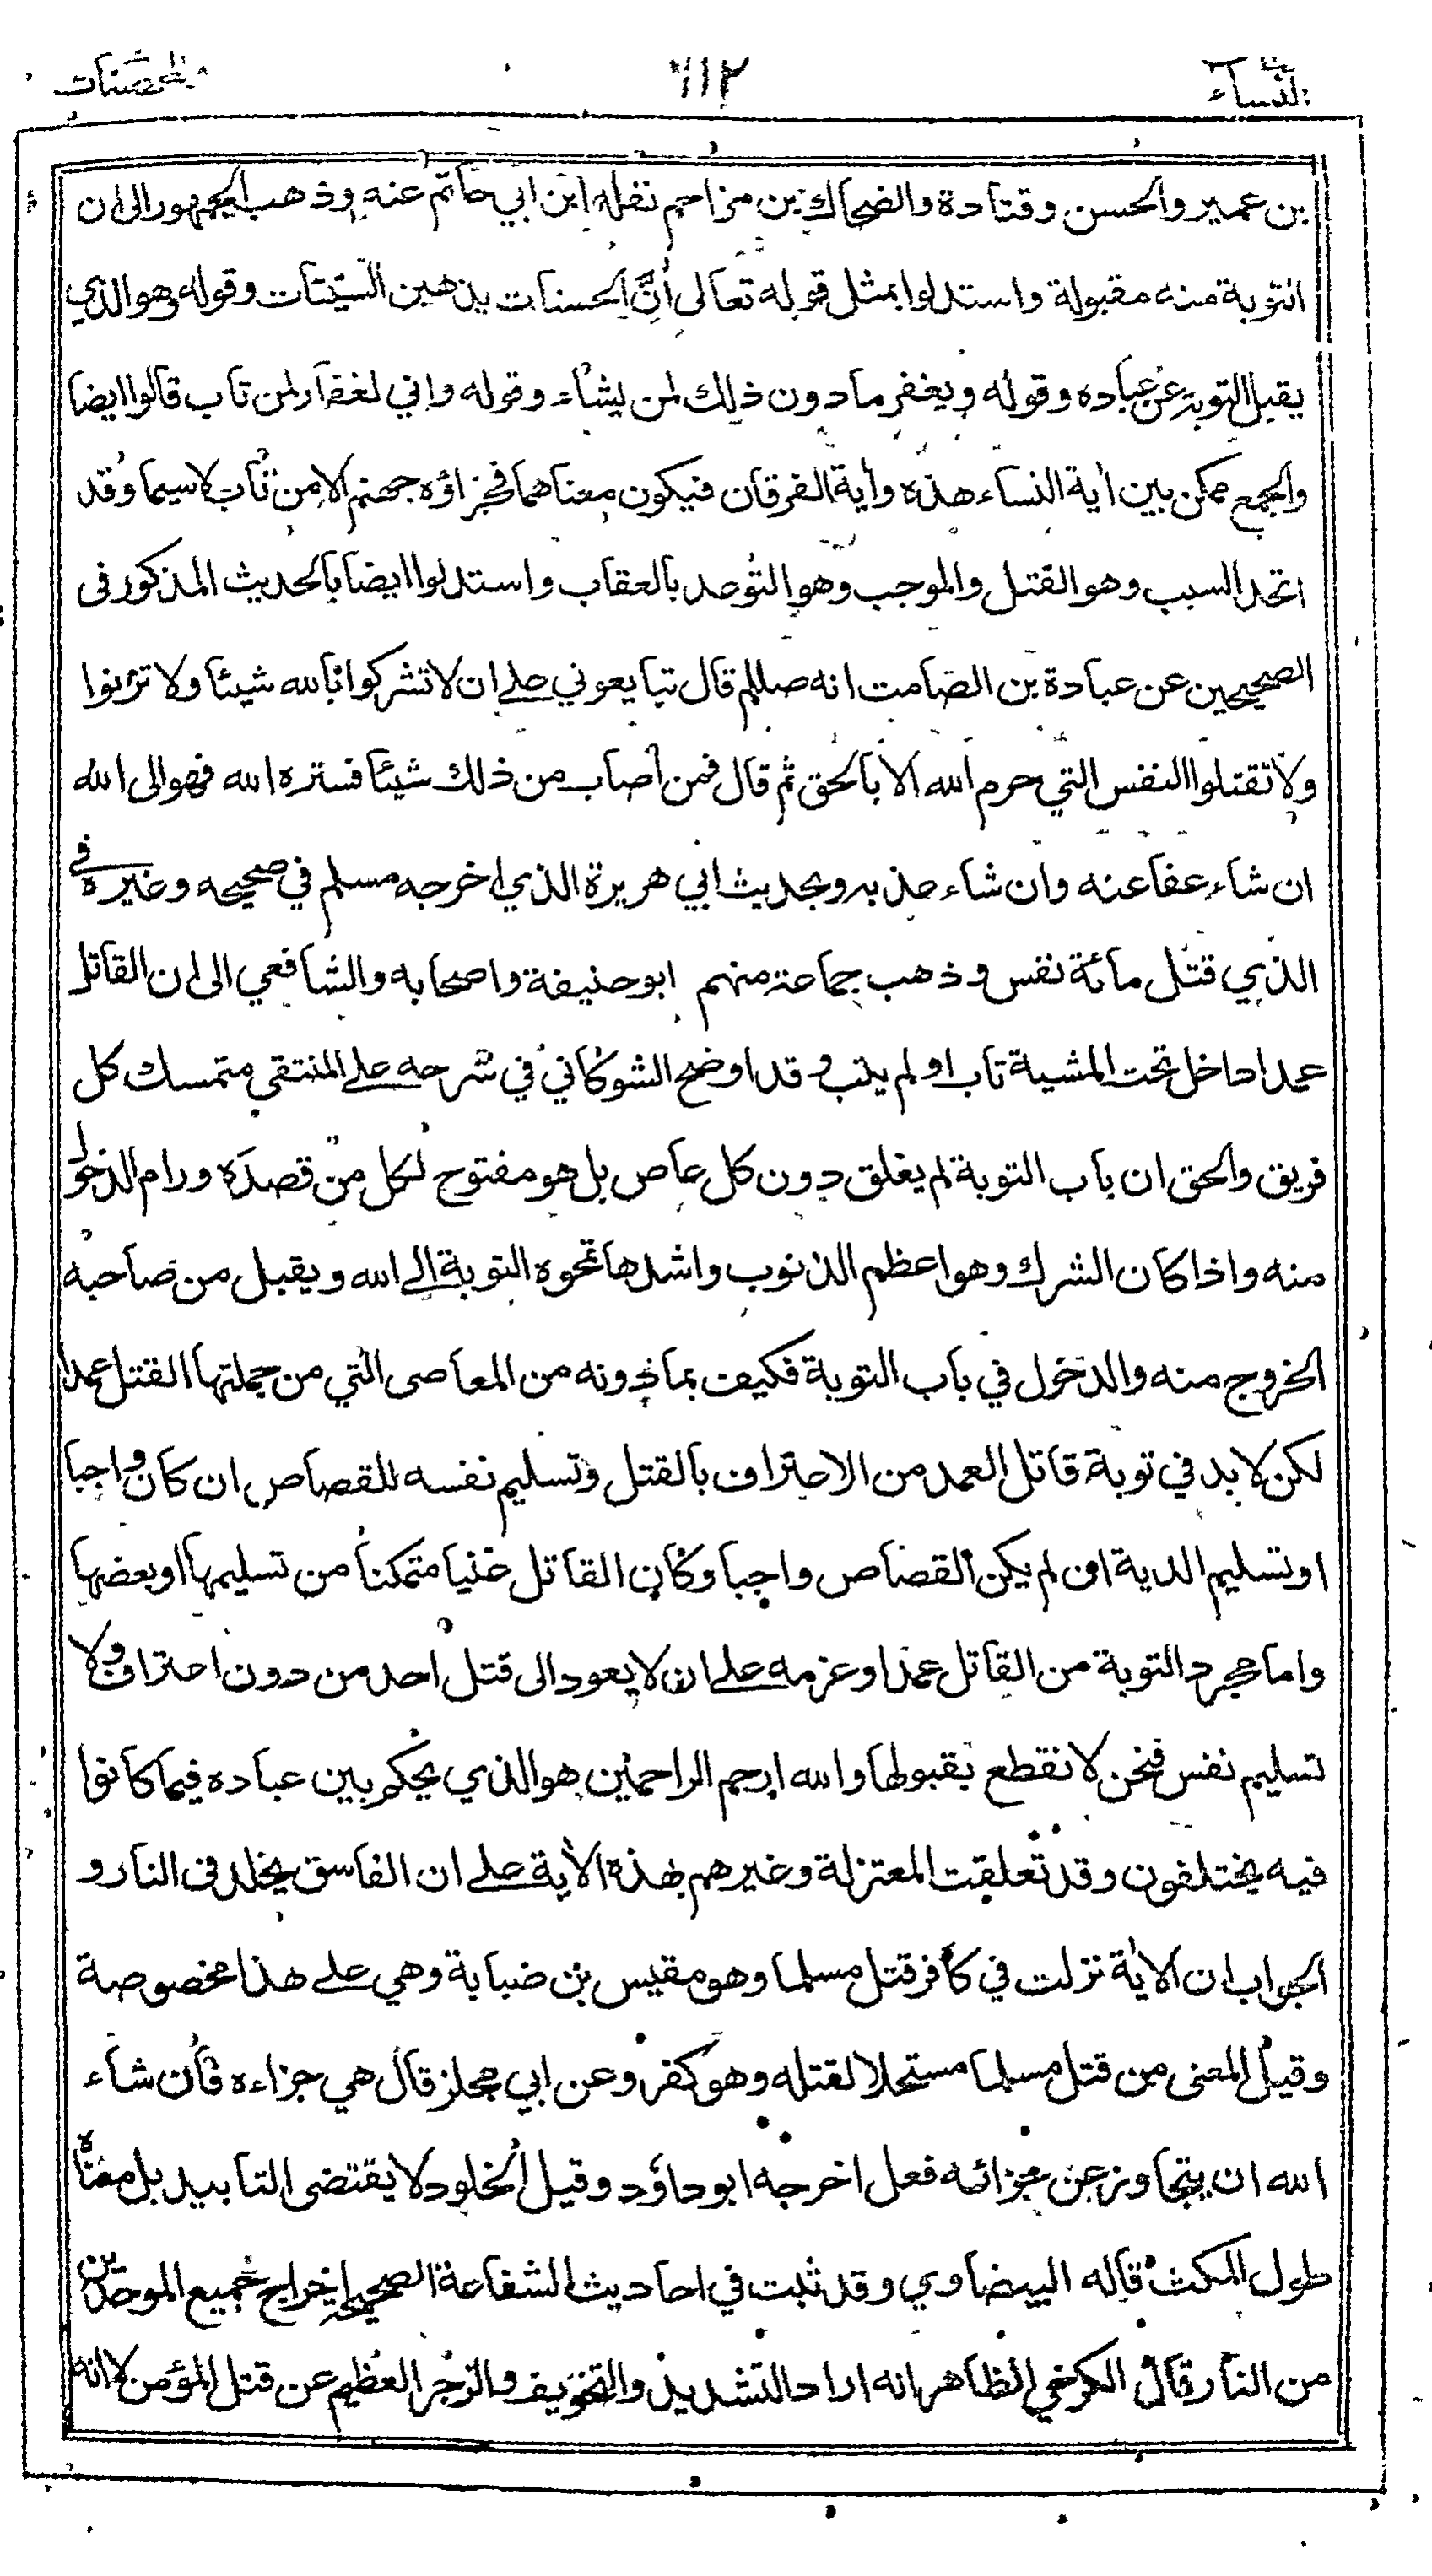 النساء ٦١٢ المحصنات
بن عمير والحسن وقتادة والضحاك بن مزاحم نقله ابن ابي حاتم عنه وذهب الجمهور الى ان
التوبة منه مقبولة واستدلوا بمثل قوله تعالى اِنَّ الحسنات يذهبن السيّئات وقوله وهو الذي
يقبل التوبة عن عباده وقوله ويغفر ما دون ذلك لمن يشاء وقوله واني لغفار لمن تاب قالوا ايضا
والجمع ممكن بين اٰية النساء هذه واٰية الفرقان فيكون معناهما فجزاؤه جهنم الا من تاب لا سيما وقد
اتحد السبب وهو القتل والموجب وهو التوعد بالعقاب واستدلوا ايضا بالحديث المذكور فى
الصحيحين عن عبادة بن الصامت انه صللم قال تبايعوني على ان لا تشركوا بالله شيئا ولا تزنوا
ولا تقتلوا النفس التي حرم الله الا بالحق ثم قال فمن اصاب من ذلك شيئا فستره الله فهو الى الله
ان شاء عفا عنه وان شاء عذبه وبحديث ابي هريرة الذي اخرجه مسلم في صحيحه وغيره في
الذي قتل مائة نفس وذهب جماعة منهم ابو حنيفة واصحابه والشافعي الى ان القاتل
عمدا داخل تحت المشية تاب او لم يتب وقد اوضح الشوكاني في شرحه على المنتقى متمسك كل
فريق والحق ان باب التوبة لم يغلق دون كل عاص بل هو مفتوح لكل من قصده ورام الدخول
منه واذا كان الشرك وهو اعظم الذنوب واشدها تمحوه التوبة الى الله ويقبل من صاحبه
الخروج منه والدخول في باب التوبة فكيف بما دونه من المعاصى التي من جملتها القتل عمدا
لكن لا بد في توبة قاتل العمد من الاعتراف بالقتل وتسليم نفسه للقصاص ان كان واجبا
او تسليم الدية ان لم يكن القصاص واجبا وكان القاتل غنيا متمكنا من تسليمها او بعضها
واما مجرد التوبة من القاتل عمدا وعزمه على ان لا يعود الى قتل احد من دون اعتراف ولا
تسليم نفس فنحن لا نقطع بقبولها والله ارحم الراحمين هو الذي يحكم بين عباده فيما كانوا
فيه يختلفون وقد تعلقت المعتزلة وغيرهم بهذه الاٰية على ان الفاسق يخلد فى النار و
الجواب ان الاٰية نزلت في كافر قتل مسلما وهو مقيس بن ضبابة وهي على هذا مخصوصة
وقيل المعنى من قتل مسلما مستحلا لقتله وهو كفر وعن ابي مجلز قال هي جزاءه فان شاء
الله ان يتجاوز عن جزائه فعل اخرجه ابو داؤد وقيل الخلود لا يقتضى التابيد بل معناه
طول المكث قاله البيضاوي وقد ثبت في احاديث الشفاعة الصحيحة اخراج جميع الموحدين
من النار قال الكرخي الظاهر انه اراد التشديد والتخويف والزجر العظيم عن قتل المؤمن لا انه